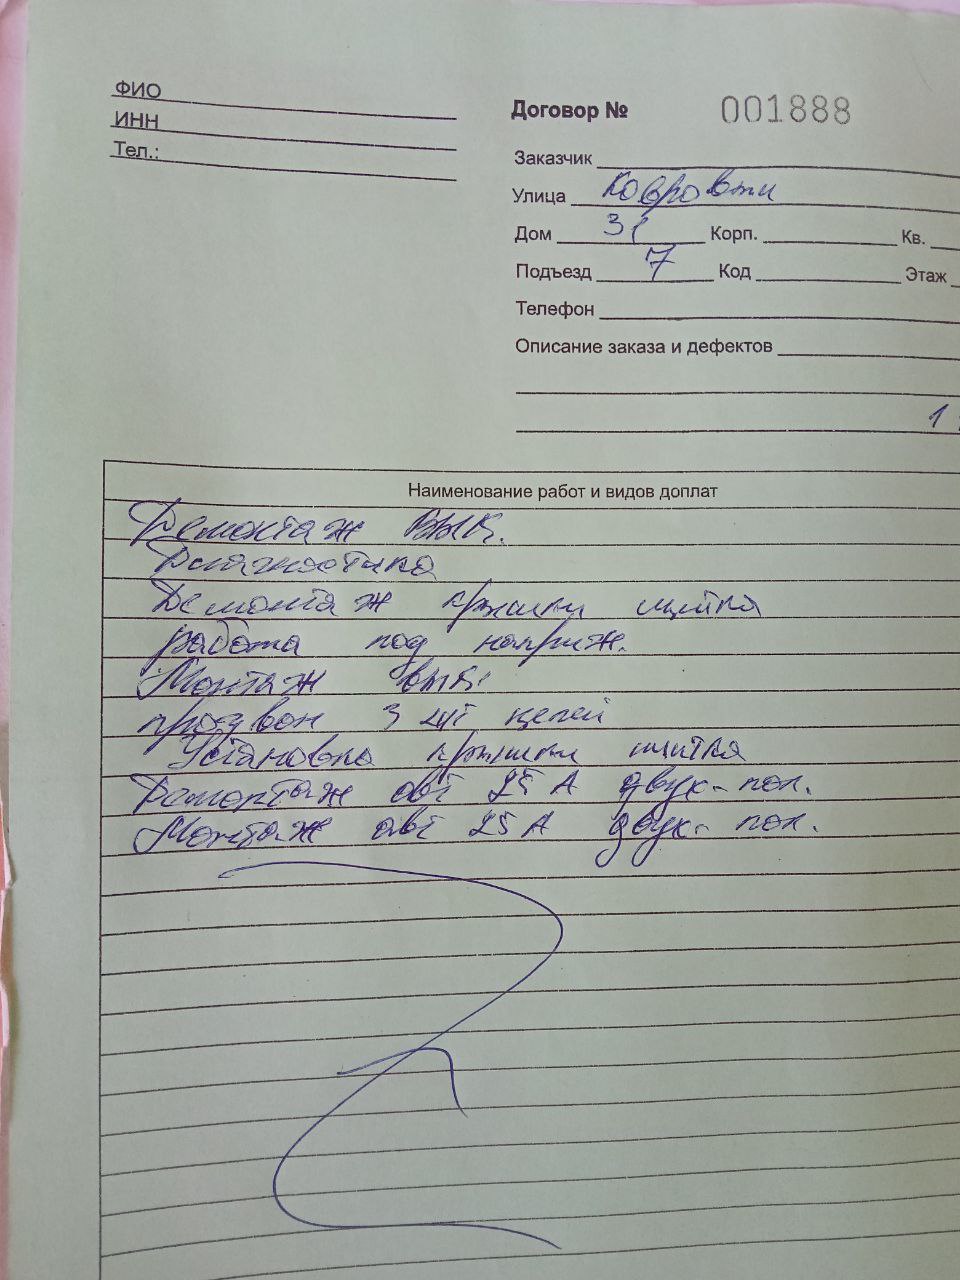 ФИО
ИНН
Тел.:
Договор № 001888
Заказчик
Улица
Дом 31 Корп. Кв.
Подъезд 7 Код Этаж
Телефон
Описание заказа и дефектов
1
Наименование работ и видов доплат
Демонтаж вык.
Диагностика
Демонтаж крышки щитка
работа под напряж.
Монтаж вык.
прозвон 3 шт цепей
Установка крышки щитка
Демонтаж авт 25 А двух-пол.
Монтаж авт 25 А двух-пол.